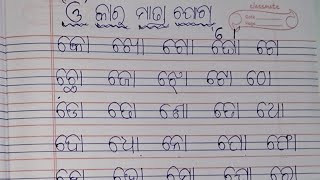 ଓ କାର ମାତ୍ରା ଯୋଗ
classmate
Date
Page
କୋ ଖୋ ଗୋ ଘୋ ଚୋ
ଛୋ ଜୋ ଝୋ ଟୋ ଠୋ
ଡୋ ଢୋ ଣୋ ତୋ ଥୋ
ଦୋ ଧୋ ନୋ ପୋ ଫୋ